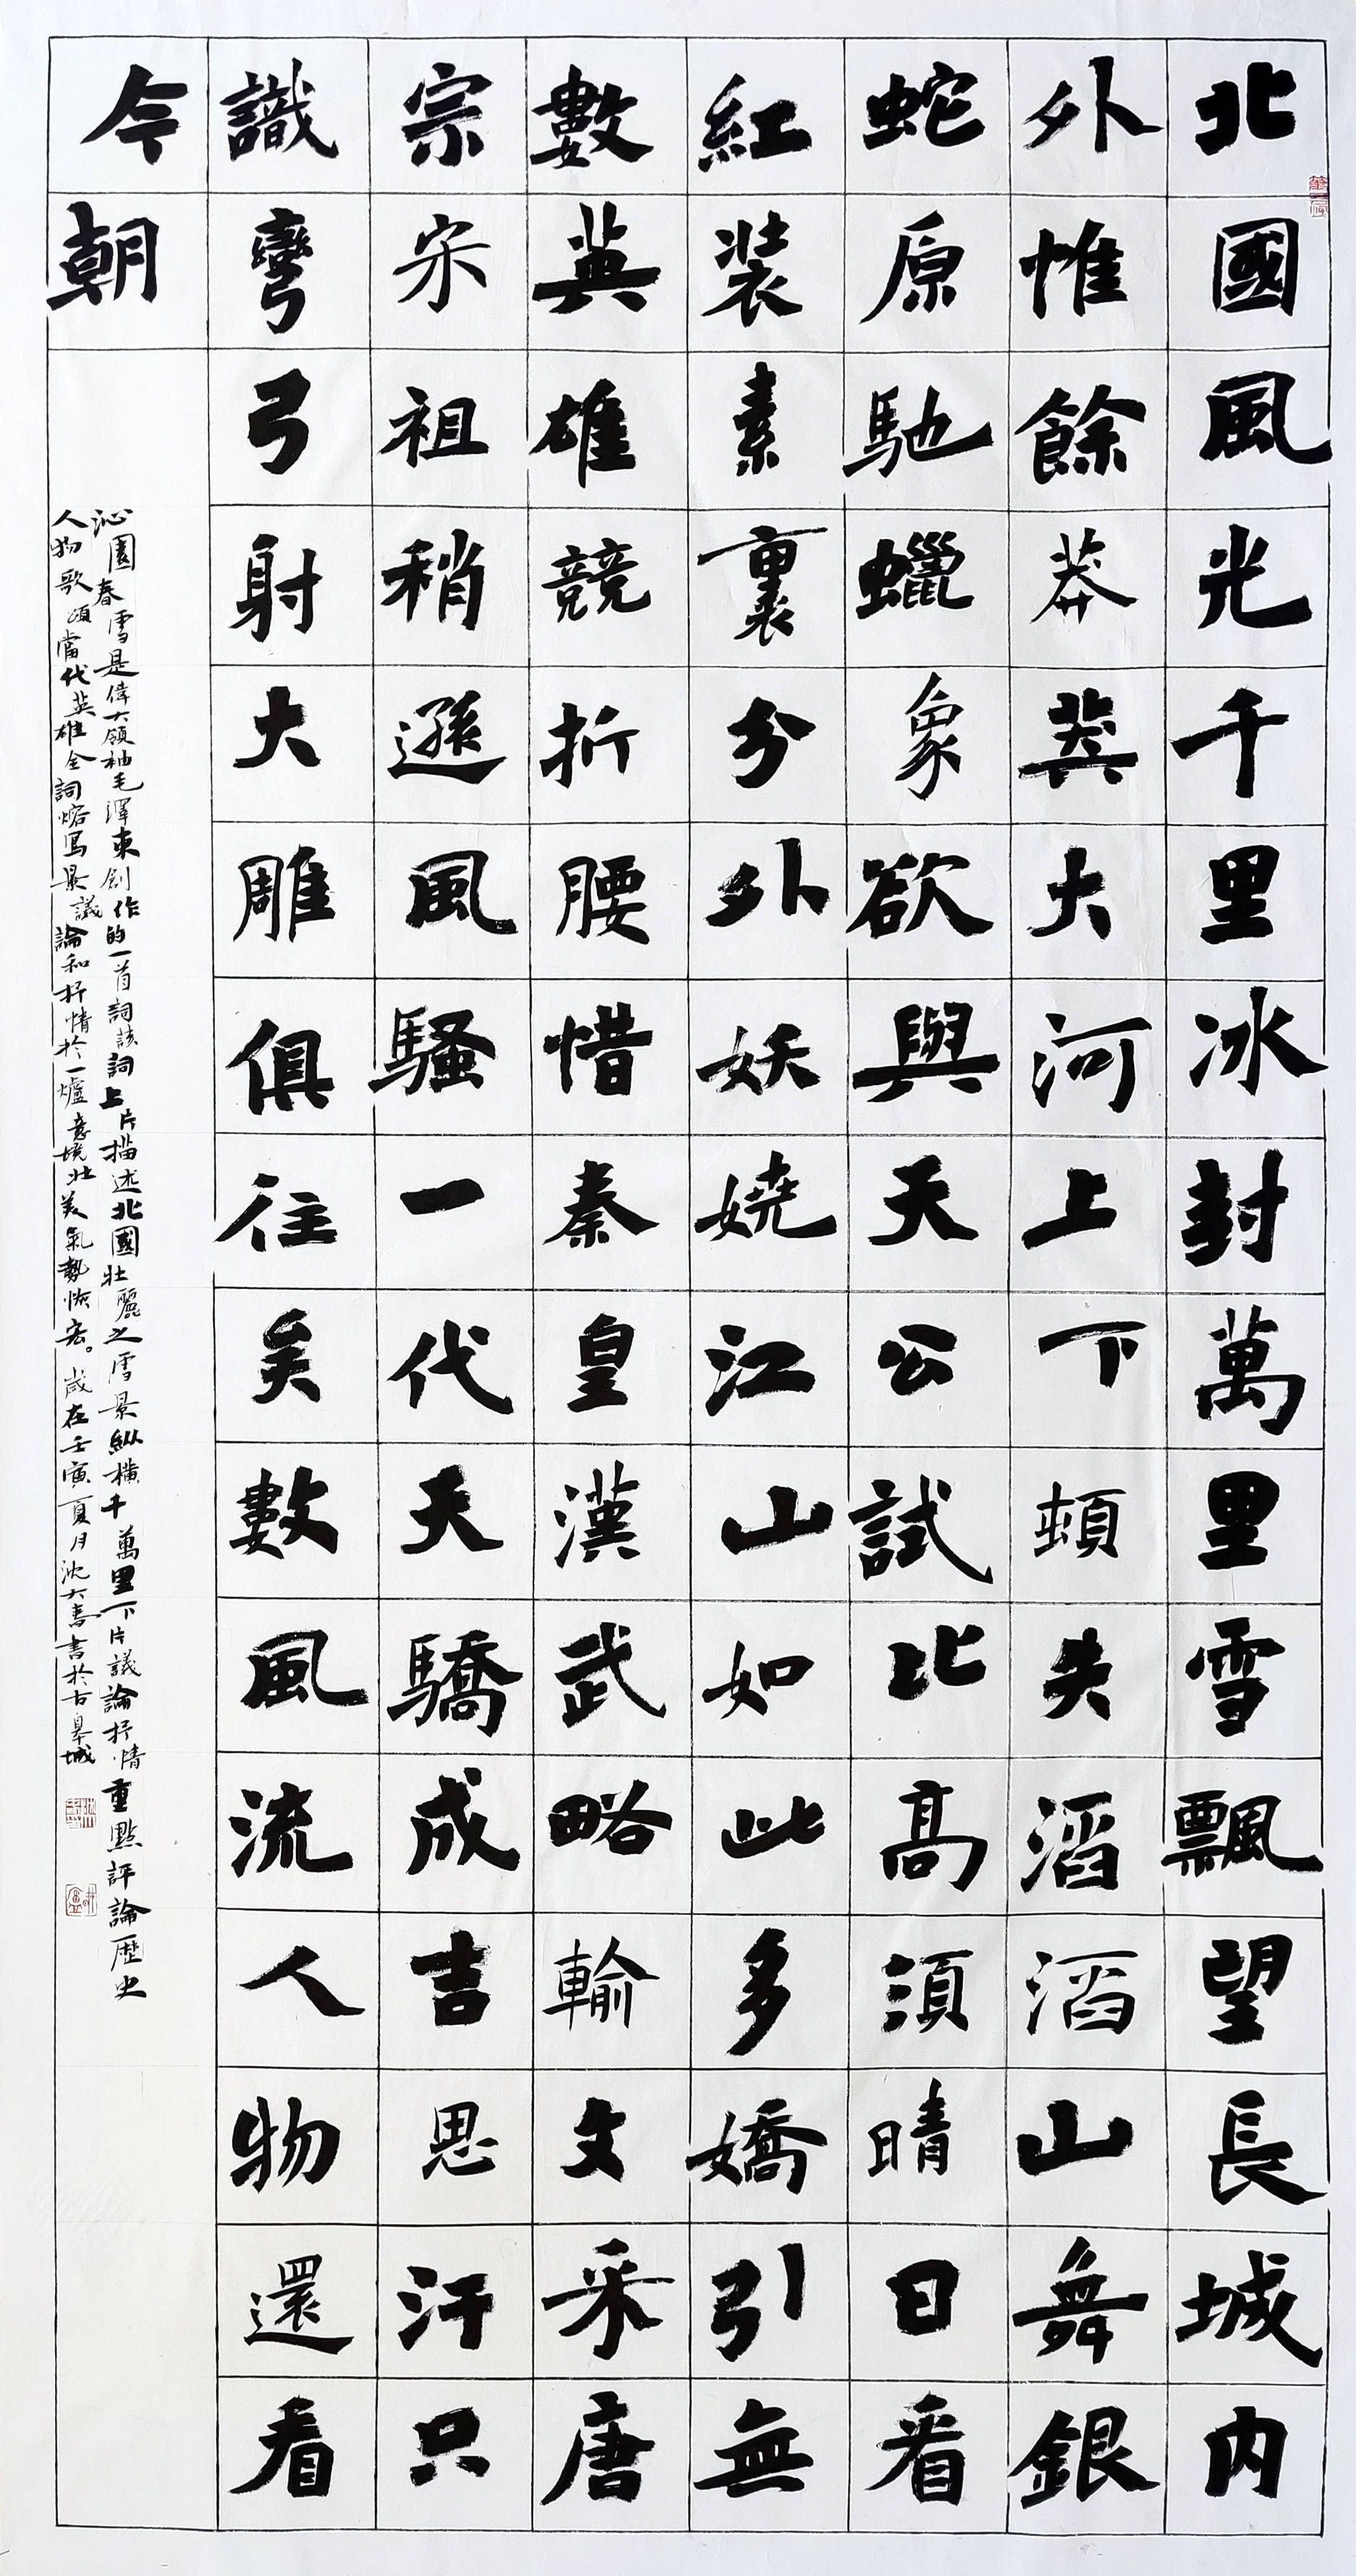 北國風光千里冰封萬里雪飄望長城内
外惟餘莽莽大河上下頓失滔滔山舞銀
蛇原馳蠟象欲與天公試比高須晴日看
紅装素裹分外妖嬈江山如此多嬌引無
數英雄競折腰惜秦皇漢武略輸文采唐
宗宋祖稍遜風騷一代天驕成吉思汗只
識彎弓射大雕俱往矣數風流人物還看
今朝
沁園春雪是偉大領袖毛澤東創作的一首詞該詞上片描述北國壯麗之雪景縱橫千萬里下片議論抒情重點評論歷史
人物歌頌當代英雄全詞熔寫景議論和抒情於一爐意境壯美氣勢恢宏。歲在壬寅夏月沈大書於古皋城